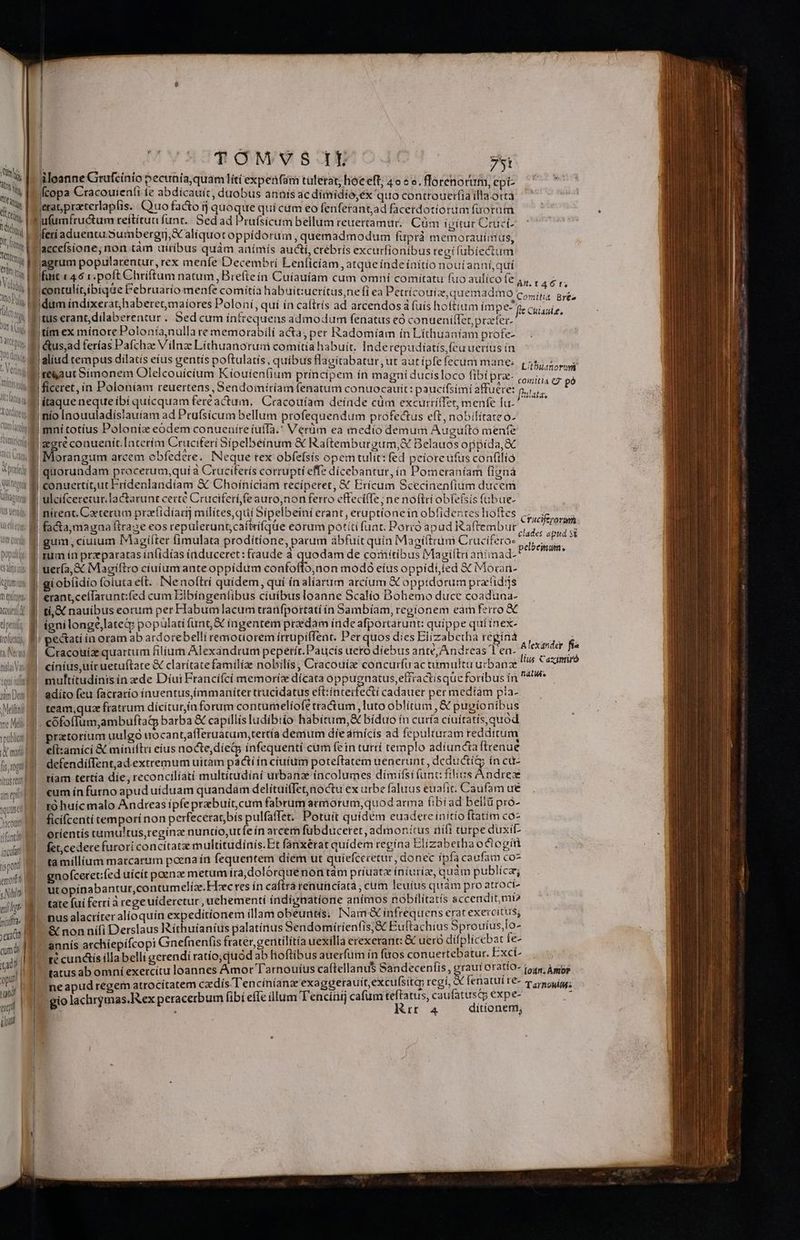 TOMVS II. 751
Ioanne Gruscinio pecunia, quam liti expensam tulerat, hoc est, 4000. florenorum, epi-
scopa Cracouiensi se abdicauit, duobus annis ac dimidio, ex quo controuersia illa orta
erat, præterlapsis. Quo facto ij quoque qui cum eo senserant, ad sacerdotiorum suorum
usumfructum restituti sunt. Sed ad Prussicum bellum reuertamur. Cùm igitur Cruci-
feri aduentu Sumbergij, & aliquot oppidorum, quemadmodum suprà memorauimus,
accessione, non tàm uiribus quàm animis aucti, crebris excursionibus regi subiectum
agrum popularentur, rex mense Decembri Lensiciam, atque inde initio noui anni, qui
fuit 1461. post Christum natum, Breste in Cuiauiam cum omni comitatu suo aulico se
contulit, ibique Februario mense comitia habuit: ueritus, ne si ea Petricouiæ, quemadmo
dum indixerat, haberet, maiores Poloni, qui in castris ad arcendos à suis hostium impe-
tus erant, dilaberentur. Sed cum infrequens admodum senatus eò conuenisset, præser-
tim ex minore Polonia, nulla re memorabili acta, per Radomiam in Lithuaniam profe-
ctus, ad ferias Paschæ Vilnæ Lithuanorum comitia habuit. Inde repudiatis, seu uerius in
aliud tempus dilatis eius gentis postulatis, quibus flagitabatur, ut aut ipse secum mane-
ret, aut Simonem Olelcouicium Kiouiensium principem in magni ducis loco sibi præ-
ficeret, in Poloniam reuertens, Sendomiriam senatum conuocauit: paucissimi affuere:
itaque neque ibi quicquam ferè actum. Cracouiam deinde cùm excurrisset, mense Iu-
nio Inouuladislauiam ad Prussicum bellum prosequendum profectus est, nobilitate o-
mni totius Poloniæ eodem conuenire iussa. Verùm ea medio demum Augusto mense
ægrè conuenit. Interim Cruciferi Sipelbeinum & Rastemburgum, & Belauos oppida, &
Morangum arcem obsedere. Neque rex obsessis opem tulit: sed peiore usus consilio
quorundam procerum, qui à Cruciferis corrupti esse dicebantur, in Pomeraniam signa
conuertit, ut Fridenlandiam & Choiniciam reciperet, & Ericum Stecinensium ducem
ulcisceretur. Iactarunt certè Cruciferi, se auro, non ferro effecisse, ne nostri obsessis subue-
nirent. Cæterum præsidiarij milites, qui Sipelbeini erant, eruptione in obsidentes hostes
facta, magna strage eos repulerunt, castrisque eorum potiti sunt. Porrò apud Rastembur
gum, ciuium Magister simulata proditione, parum abfuit quin Magistrum Crucifero-
rum in præparatas insidias induceret: fraude à quodam de comitibus Magistri animad-
uersa, & Magistro ciuium ante oppidum confosso, non modò eius oppidi, sed & Moran-
gi obsidio soluta est. Ne nostri quidem, qui in aliarum arcium & oppidorum præsidijs
erant, cessarunt: sed cum Elbingensibus ciuibus Ioanne Scalio Bohemo duce coaduna-
ti, & nauibus eorum per Habum lacum transportati in Sambiam, regionem eam ferro &
igni longè, lateque populati sunt, & ingentem prædam inde asportarunt: quippe qui inex-
pectati in oram ab ardore belli remotiorem irrupissent. Per quos dies Elizabetha regina
Cracouiæ quartum filium Alexandrum peperit. Paucis uerò diebus antè, Andreas Ten-
cinius, uir uetustate & claritate familiæ nobilis, Cracouiæ concursu ac tumultu urbanæ
multitudinis in æde Diui Francisci memoriæ dicata oppugnatus, effractisque foribus in
adito seu sacrario inuentus, immaniter trucidatus est: interfecti cadauer per mediam pla-
team, quæ fratrum dicitur, in forum contumeliosè tractum, luto oblitum, & pugionibus
cōfossum, ambustaque barba & capillis ludibrio habitum, & biduo in curia ciuitatis, quod
prætorium uulgò uocant, asseruatum, tertia demum die amicis ad sepulturam redditum
est: amici & ministri eius nocte, dieque insequenti cum se in turri templo adiuncta strenuè
defendissent, ad extremum uitam pacti in ciuium potestatem uenerunt, deductique in cu-
riam tertia die, reconciliati multitudini urbanæ incolumes dimissi sunt: filius Andreæ
cum in furno apud uiduam quandam delituisset, noctu ex urbe saluus euasit. Causam ue
rò huic malo Andreas ipse præbuit, cum fabrum armorum, quod arma sibi ad bellū pro-
ficiscenti tempori non perfecerat, bis pulsasset. Potuit quidem euadere initio statim co-
orientis tumultus, reginæ nuntio, ut se in arcem subduceret, admonitus nisi turpe duxis-
set, cedere furori concitatæ multitudinis. Et sanxerat quidem regina Elizabetha octogin
ta millium marcarum pœna in sequentem diem ut quiesceretur, donec ipsa causam co-
gnosceret: sed uicit pœnæ metum ira, dolorque non tàm priuatæ iniuriæ, quàm publicæ,
ut opinabantur, contumeliæ. Hæc res in castra renunciata, cum leuius quàm pro atroci-
tate sui ferri à rege uideretur, uehementi indignatione animos nobilitatis accendit, mi-
nus alacriter alioquin expeditionem illam obeuntis. Nam & infrequens erat exercitus,
& non nisi Derslaus Rithuianius palatinus Sendomiriensis, & Eustachius Sprouius, Io-
annis archiepiscopi Gnesnensis frater, gentilitia uexilla erexerant: & uerò displicebat fe-
rè cunctis illa belli gerendi ratio, quòd ab hostibus auersum in suos conuertebatur. Exci-
tatus ab omni exercitu Ioannes Amor Tarnouius castellanus Sandecensis, graui oratio-
ne apud regem atrocitatem cædis Tencinianæ exaggerauit, excusitque regi, & senatui re-
gio lachrymas. Rex peracerbum sibi esse illum Tencinij casum testatus, causatusque expe-
Rrr 4 ditionem,
An. 1461.
Comitia Bre-
ste Cuiauiæ.
Lithuanorum
comitia & po
stulata.
Cruciferorum
clades apud Si
pelbeinum.
Alexander fi-
lius Cazimiro
natus.
Ioan. Amor
Tarnouius.